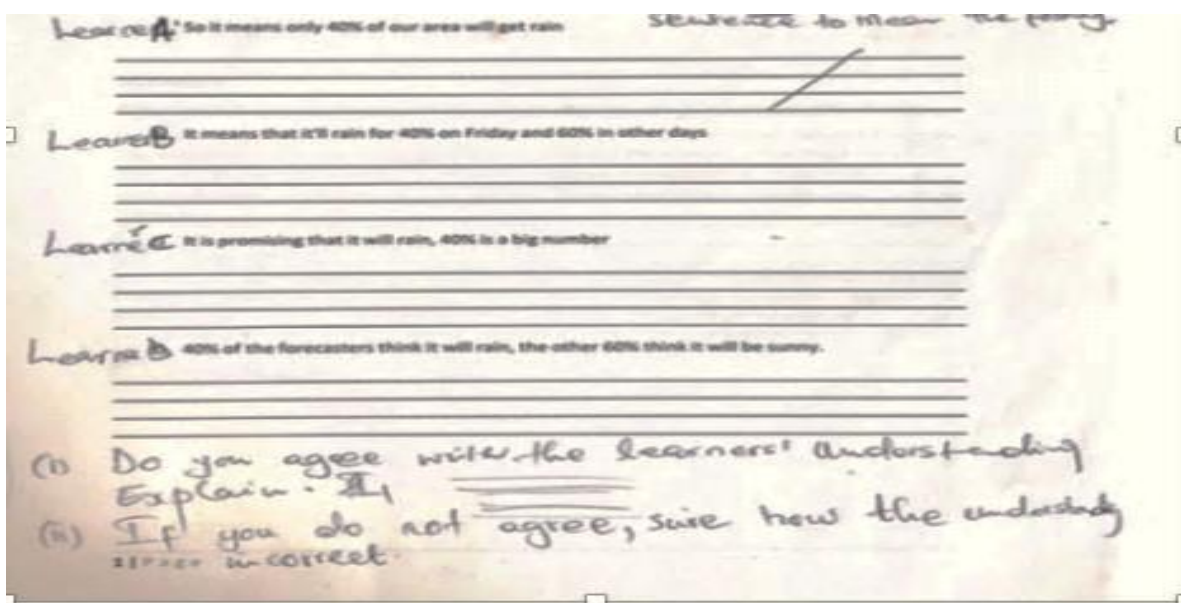 Learner A So it means only 40% of our area will get rain
sentence to mean the
Learner B It means that it'll rain for 40% on Friday and 60% in other days
Learner C It is promising that it will rain, 40% is a big number
Learner D 40% of the forecasters think it will rain, the other 60% think it will be sunny.
(i) Do you agree with the learners' understanding
Explain.
(ii) If you do not agree, how the
incorrect.